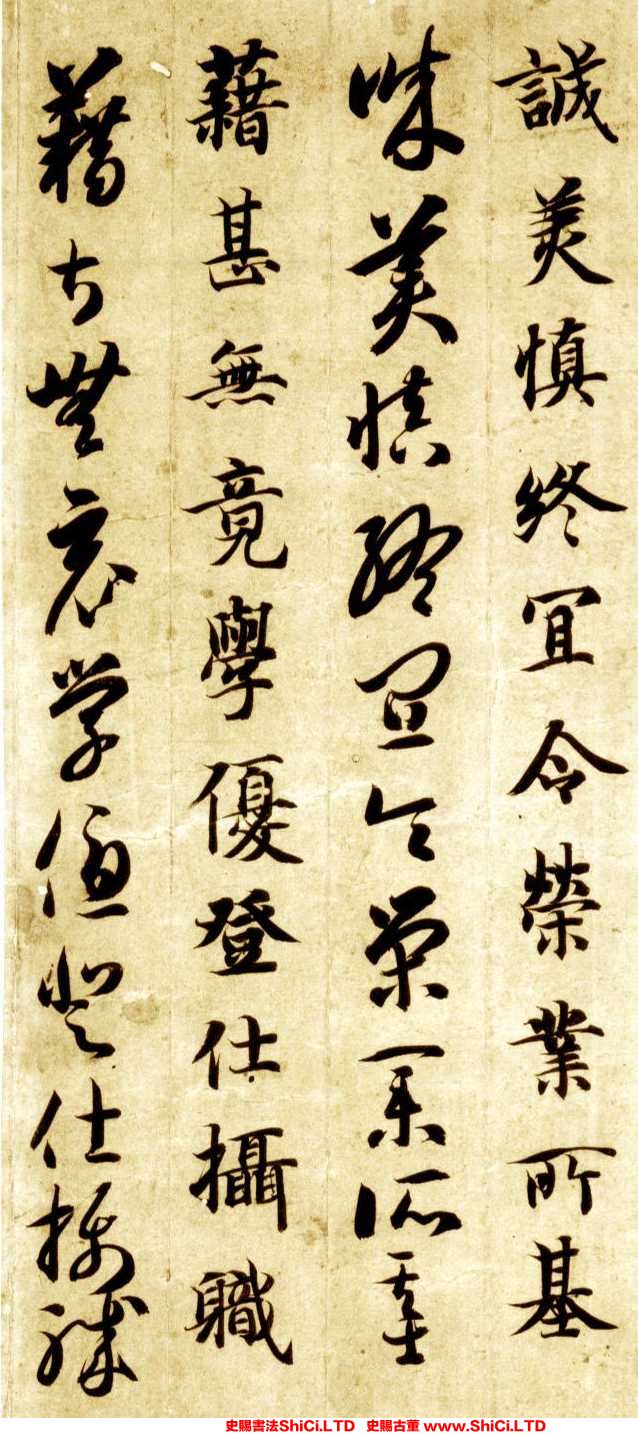 誠美慎終宜令榮業所基
誠美慎終宜令榮業所基
藉甚無竟學優登仕攝職
藉甚無竟學優登仕攝職
史賜書法ShiCi.LTD 史賜古董 www.ShiCi.LTD